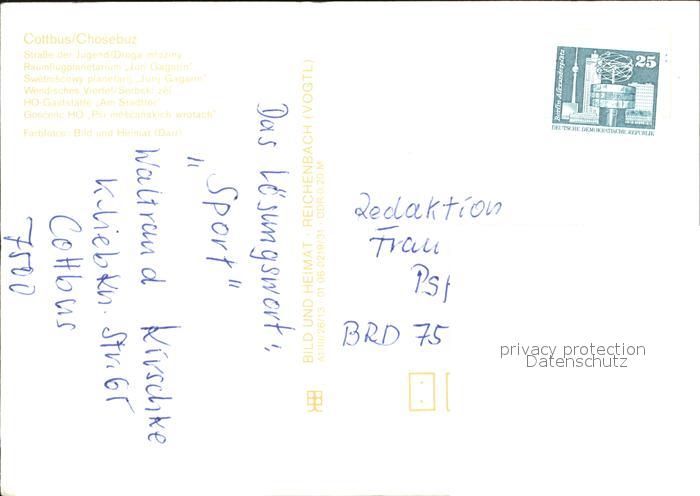 Cottbus/Chosebuz
Straße der Jugend/Droga młoźiny
Raumflugplanetarium „Juri Gagarin"
Swětnišćowy planetarij „Jurij Gagarin"
Wendisches Viertel/Serbski źěl
HO-Gaststätte „Am Stadttor"
Gosćenc HO „Pśi měšćańskich wrotach"
Farbfotos: Bild und Heimat (Darr)
Das Lösungswort:
"Sport"
Waltraud Kirschke
K.-Liebkn. Str. 65
Cottbus
7500
BILD UND HEIMAT · REICHENBACH (VOGTL)
A1/III/26/13 01 06 0219/31 DDR 0,20 M
Berlin, Alexanderplatz
25
DEUTSCHE DEMOKRATISCHE REPUBLIK
Redaktion
Frau
BRD 75
privacy protection
Datenschutz